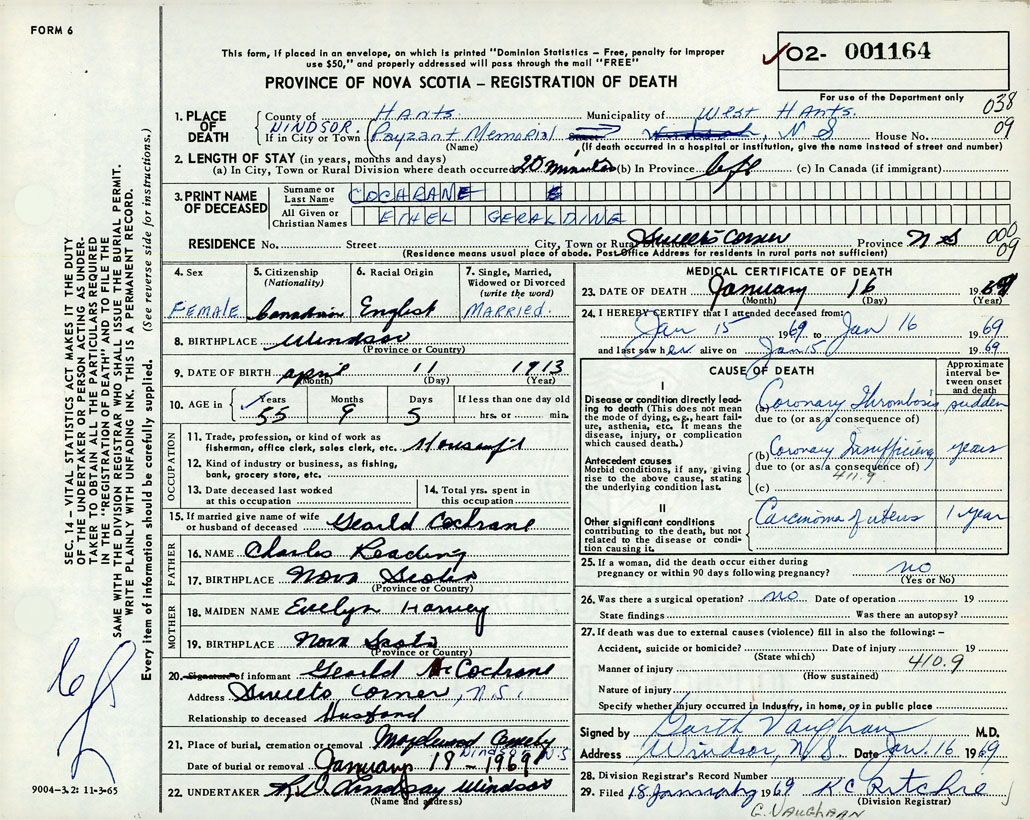 FORM 6
This form, if placed in an envelope, on which is printed "Dominion Statistics – Free, penalty for improper
use $50," and properly addressed will pass through the mail "FREE"
PROVINCE OF NOVA SCOTIA – REGISTRATION OF DEATH
✓O2- 001164
For use of the Department only
038
09
1. PLACE OF DEATH
County of Hants. Municipality of West Hants.
WINDSOR.
If in City or Town Payzant Memorial Street Windsor, N S House No.
(Name) (If death occurred in a hospital or institution, give the name instead of street and number)
2. LENGTH OF STAY (in years, months and days)
(a) In City, Town or Rural Division where death occurred 20 minutes (b) In Province life (c) In Canada (if immigrant)
3. PRINT NAME OF DECEASED
Surname or Last Name COCHRANE E
All Given or Christian Names ETHEL GERALDINE
RESIDENCE No. Street City, Town or Rural Division Sweets Corner Province N S
000
09
(Residence means usual place of abode. Post Office Address for residents in rural parts not sufficient)
4. Sex FEMALE
5. Citizenship (Nationality) Canadian
6. Racial Origin English
7. Single, Married, Widowed or Divorced (write the word) MARRIED.
8. BIRTHPLACE Windsor
(Province or Country)
9. DATE OF BIRTH april 11 1913
(Month) (Day) (Year)
10. AGE in Years 55 Months 9 Days 5 If less than one day hrs. or min.
OCCUPATION
11. Trade, profession, or kind of work as fisherman, office clerk, sales clerk, etc. Housewife
12. Kind of industry or business, as fishing, bank, grocery store, etc.
13. Date deceased last worked at this occupation
14. Total yrs. spent in this occupation
15. If married give name of wife or husband of deceased Gearld Cochrane
FATHER
16. NAME Charles Reading
17. BIRTHPLACE Nova Scotia
(Province or Country)
MOTHER
18. MAIDEN NAME Evelyn Harvey
19. BIRTHPLACE Nova Scotia
(Province or Country)
20. Signature of informant Gearld Cochrane
Address Sweets Corner, N.S.
Relationship to deceased Husband
21. Place of burial, cremation or removal Maplewood Cemetery
Windsor N S
Date of burial or removal January 18 - 1969
22. UNDERTAKER Lindsay Windsor
(Name and address)
MEDICAL CERTIFICATE OF DEATH
23. DATE OF DEATH January 16 1969
(Month) (Day) (Year)
24. I HEREBY CERTIFY that I attended deceased from:
Jan 15 1969 to Jan 16 1969
and last saw her alive on Jan 15 1969
CAUSE OF DEATH
Approximate interval between onset and death
I
Disease or condition directly leading to death (This does not mean the mode of dying, e.g., heart failure, asthenia, etc. It means the disease, injury, or complication which caused death.)
(a) Coronary Thrombosis sudden
due to (or as a consequence of)
Antecedent causes
Morbid conditions, if any, giving rise to the above cause, stating the underlying condition last.
(b) Coronary Insufficiency years
due to (or as a consequence of)
411.9
(c)
II
Other significant conditions contributing to the death, but not related to the disease or condition causing it.
Carcinoma of uterus 1 year
25. If a woman, did the death occur either during pregnancy or within 90 days following pregnancy? no
(Yes or No)
26. Was there a surgical operation? no Date of operation 19
State findings Was there an autopsy?
27. If death was due to external causes (violence) fill in also the following: –
Accident, suicide or homicide? Date of injury 19
(State which)
Manner of injury 410.9
(How sustained)
Nature of injury
Specify whether injury occurred in industry, in home, or in public place
Signed by Garth Vaughan M.D.
Address Windsor, N S. Date Jan. 16 1969
28. Division Registrar's Record Number
29. Filed 18 January 1969 K C Ritchie
(Division Registrar)
G. VAUGHAN
SEC. 14 – VITAL STATISTICS ACT MAKES IT THE DUTY
OF THE UNDERTAKER OR PERSON ACTING AS UNDER-
TAKER TO OBTAIN ALL THE PARTICULARS REQUIRED
IN THE "REGISTRATION OF DEATH" AND TO FILE THE
SAME WITH THE DIVISION REGISTRAR WHO SHALL ISSUE THE BURIAL PERMIT.
WRITE PLAINLY WITH UNFADING INK. THIS IS A PERMANENT RECORD.
Every item of information should be carefully supplied. (See reverse side for instructions.)
9004-3.2: 11-3-65